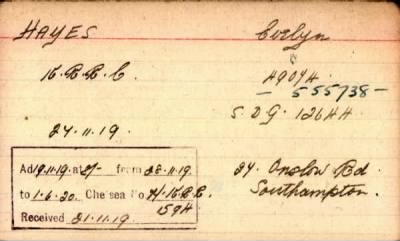 HAYES Evelyn
16.R.R.C. H904H.
- 555738 -
S.D.G. 126HH
24.11.19.
Ad/9.11.19.at 27/- from 26.11.19.
to 1.6.20. Chelsea No 74.16.R.R.
159H
Received 21.11.19
24. Onslow Rd.
Southampton.